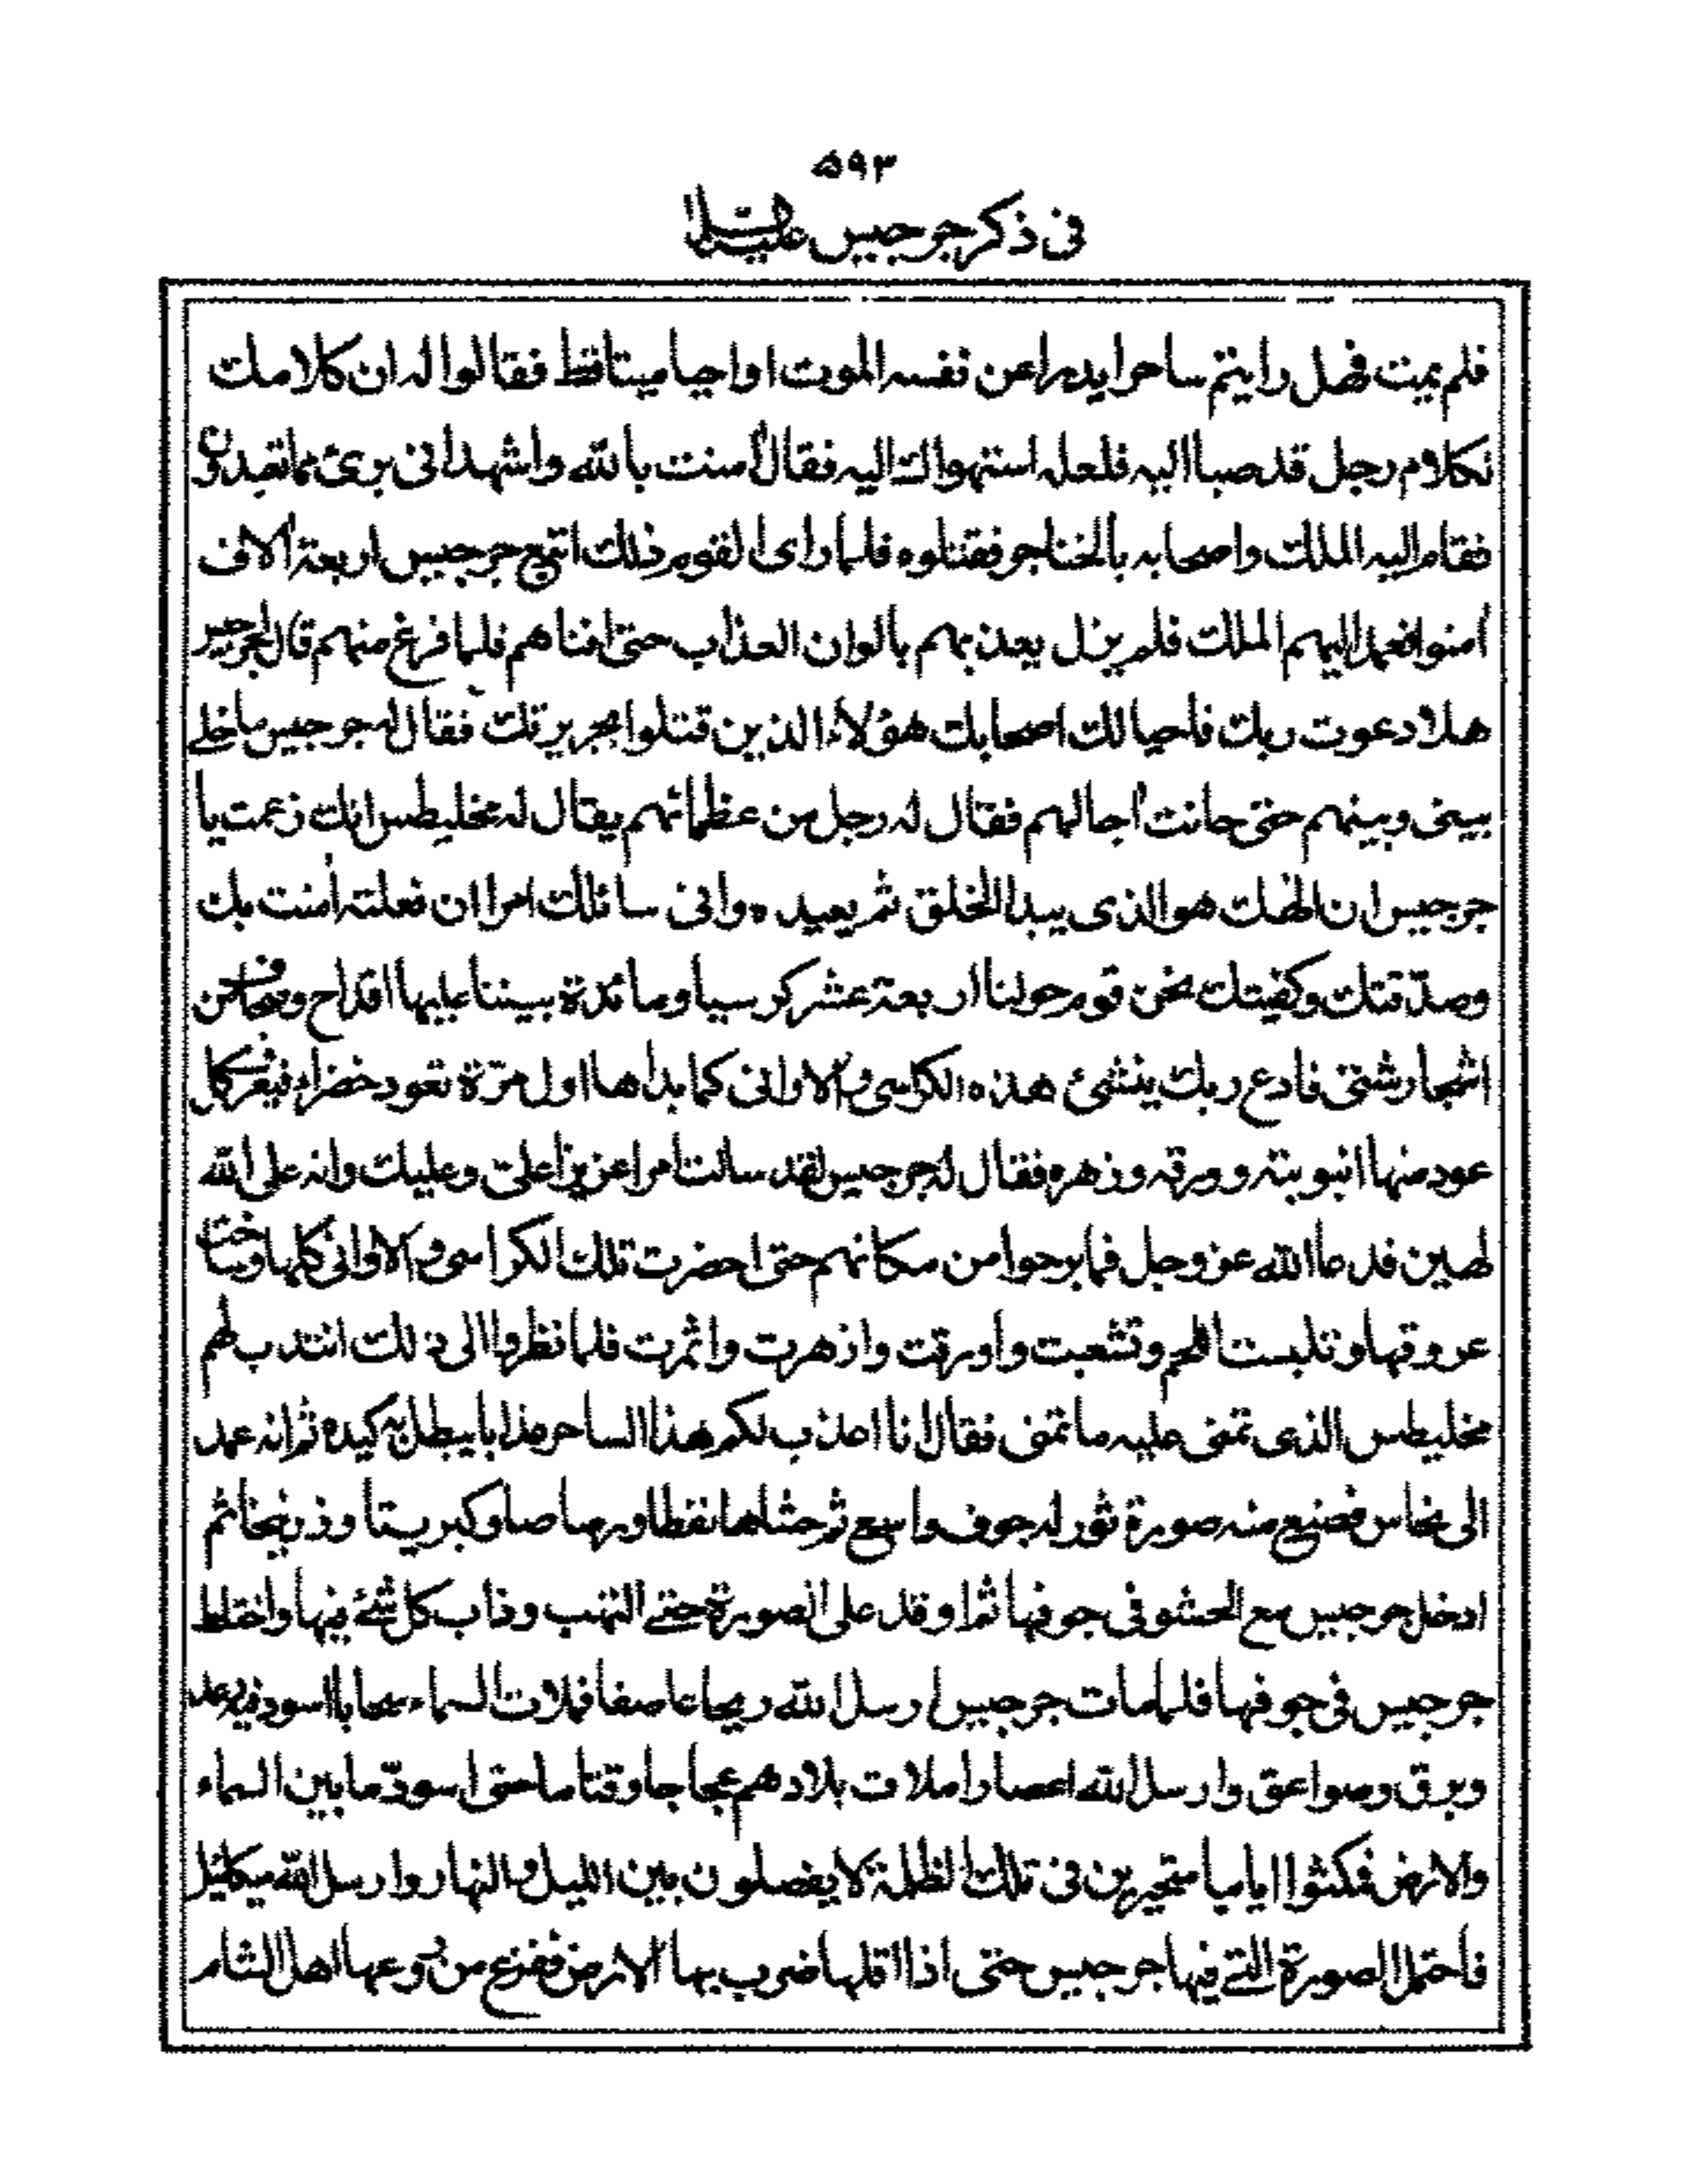 ٥٩٣
فى ذكر جرجيس عليه السلام
فلم يمت فهل رايتم ساحرا يدرا عن نفسه الموت او احيا ميتا قط فقالوا له ان كلامك
لكلام رجل قد صبا اليه فلعله استهواك اليه فقال اٰمنت بالله واشهد انى برئ مما تعبدون
فقام اليه الملك واصحابه بالخناجر فقتلوه فلما راى القوم ذلك اتبع جرجيس اربعة اٰلاف
اٰمنوا فعمد اليهم الملك فلم يزل يعذبهم بالوان العذاب حتى افناهم فلما فرغ منهم قال لجرجيس
هلا دعوت ربك فاحيا لك اصحابك هؤلاء الذين قتلوا بجريرتك فقال له جرجيس ما خلى
بينى وبينهم حتى حانت اٰجالهم فقال له رجل من عظمائهم يقال له مخليطس انك زعمت يا
جرجيس ان الهك هو الذى يبدا الخلق ثم يعيده وانى سائلك امرا ان فعلته اٰمنت بك
وصدّقتك وكفيتك نحن قوم حولنا اربعة عشر كرسيا ومائدة بيننا عليها اقداح وصحاف من
اشجار شتى فادع ربك ينشئ هذه الكراسى والاوانى كما بداها اول مرّة تعود خضراء فيعرف كل
عود منها انبوبته وورقه وزهره فقال له جرجيس لقد سالت امرا عزيزا على وعليك وانه على الله
لهين فدعا الله عز وجل فما برحوا من مكانهم حتى احضرت تلك الكراسى والاوانى كلها وساخت
عروقها وتلبست اللحم وتشعبت واورقت وازهرت واثمرت فلما نظروا الى ذلك انتدب لهم
مخليطس الذى تمنى عليه ما تمنى فقال انا اعذب لكم هذا الساحر عذابا يبطل به كيده ثم انه عمد
الى نحاس فصنع منه صورة ثور له جوف واسع ثم حشاها نفطا ورصاصا وكبريتا وزرنيخا ثم
ادخل جرجيس مع الحشو فى جوفها ثم اوقد على الصورة حتى التهب وذاب كل شئ فيها واختلط
جرجيس فى جوفها فلما مات جرجيس ارسل الله ريحا عاصفا فملات السماء سحابا اسود فيه رعد
وبرق وصواعق وارسل الله اعصارا ملات بلادهم عجاجا وقتاما حتى اسودّ ما بين السماء
والارض فمكثوا اياما متحيرين فى تلك الظلمة لا يفصلون بين الليل والنهار وارسل الله ميكائيل
فاحتمل الصورة التى فيها جرجيس حتى اذا اقلها ضرب بها الارض ففزع من روعها اهل الشام